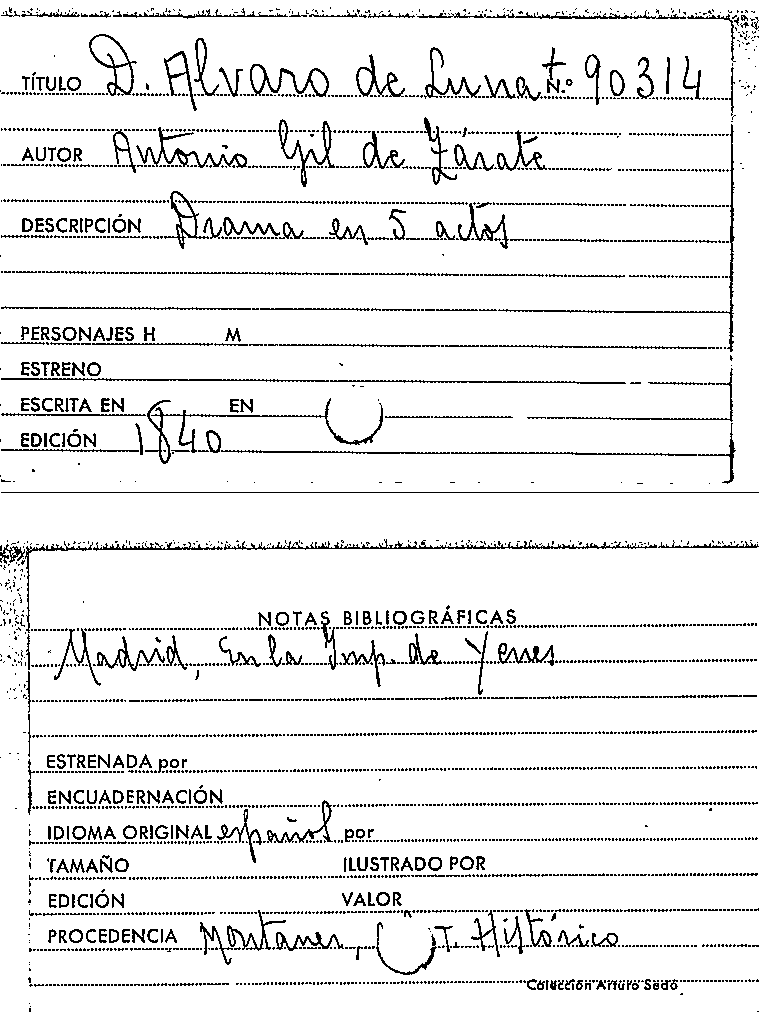 TÍTULO D. Alvaro de Luna + N.º 90314
AUTOR Antonio Gil de Zárate
DESCRIPCIÓN Drama en 5 actos
PERSONAJES H M
ESTRENO
ESCRITA EN EN
EDICIÓN 1840
NOTAS BIBLIOGRÁFICAS
Madrid, En la Imp. de Yenes
ESTRENADA por
ENCUADERNACIÓN
IDIOMA ORIGINAL español por
TAMAÑO ILUSTRADO POR
EDICIÓN VALOR
PROCEDENCIA Montaner, T. Histórico
Colección Arturo Sedó